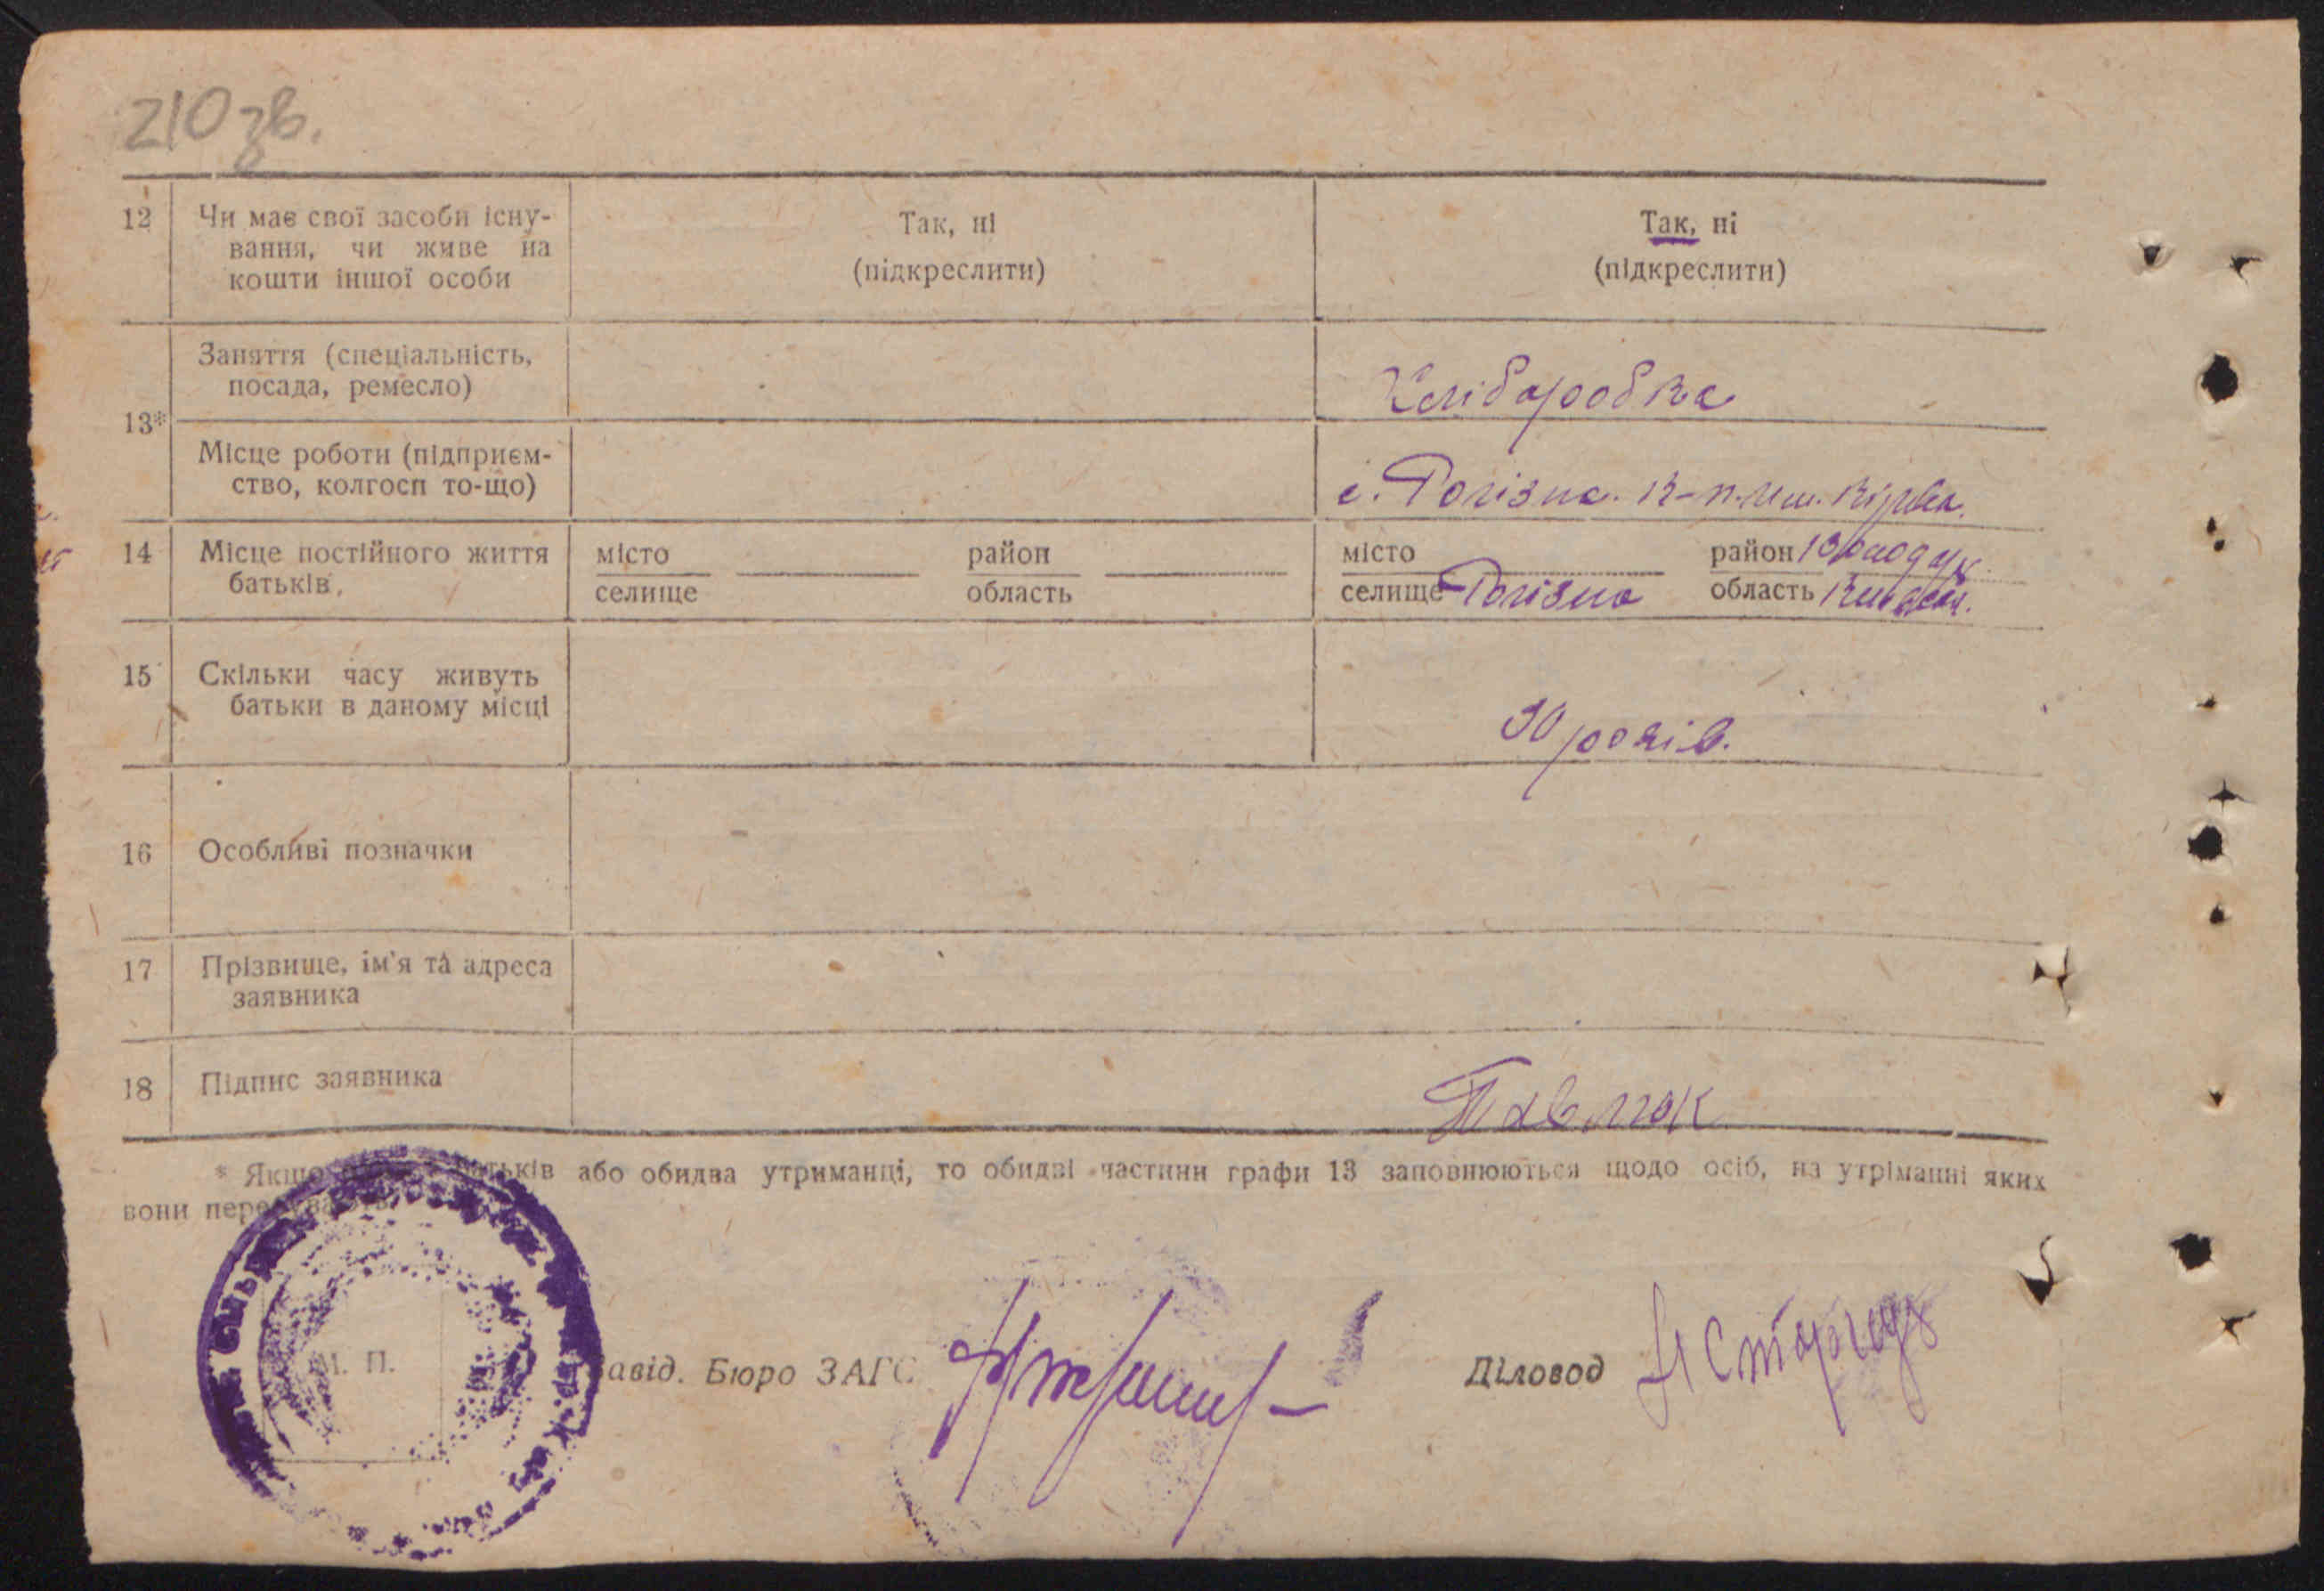 210 зв.
12 Чи має свої засоби існу-
вання, чи живе на
кошти іншої особи
Так, ні
(підкреслити)
Так, ні
(підкреслити)
13*
Заняття (спеціальність,
посада, ремесло)
Хлібаробка
Місце роботи (підприєм-
ство, колгосп то-що)
с. Рогізна. К-п. им. Кірова.
14 Місце постійного життя
батьків,
місто
селище
район
область
місто
селище Рогізна
район Володар.
область Київськ.
15 Скільки часу живуть
батьки в даному місці
30 років.
16 Особливі позначки
17 Прізвище, ім'я та адреса
заявника
18 Підпис заявника
Павлюк
* Якщо батьків або обидва утриманці, то обидві частини графи 13 заповнюються щодо осіб, на утріманні яких
вони перебувають.
М. П.
Завід. Бюро ЗАГС
Діловод